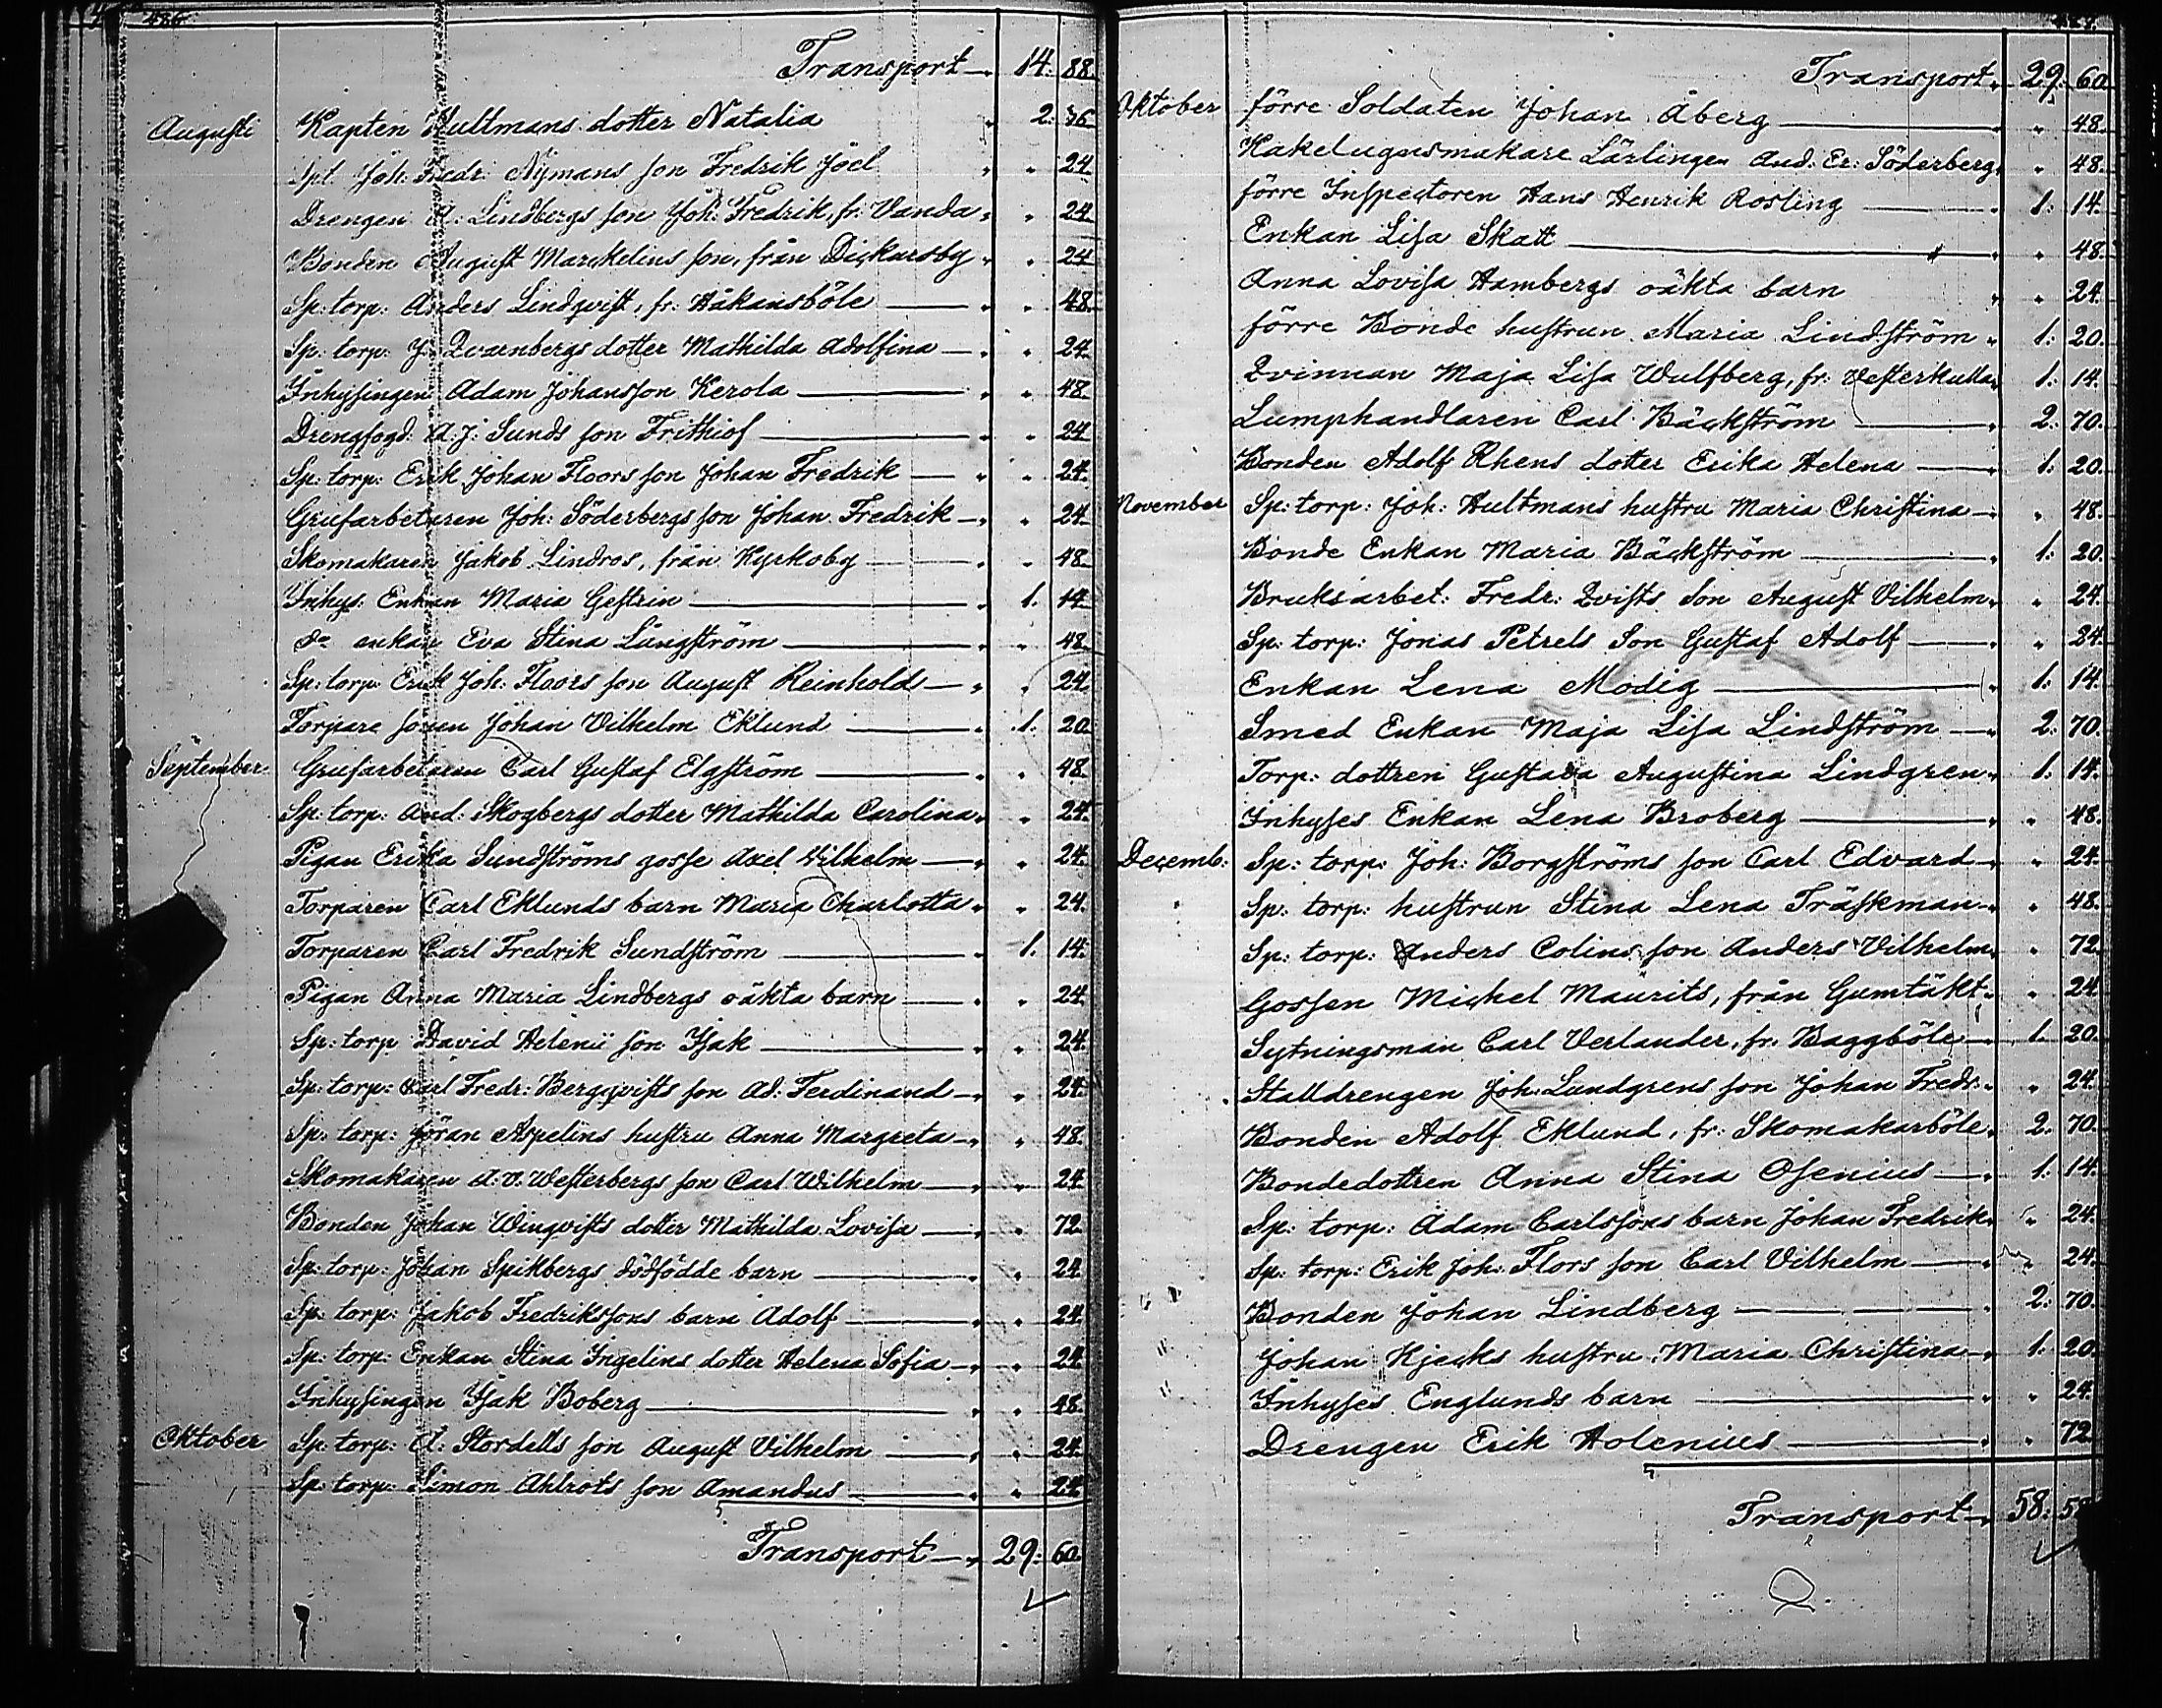 486.
Transport 14: 88.
Augusti Kapten Hultmans dotter Natalia " 2: 76
Spt. Joh: Fredr: Nymans son Fredrik Joel " " 24
Drengen A: Lindbergs son Joh: Fredrik, fr: Vanda " " 24
Bonden August Marckelins son, från Dickursby " " 24
Sp: torp: Anders Lindqvist, fr: Håkansböle " " 48.
Sp: torp: J: Qvarnbergs dotter Mathilda Adolfina " " 24.
Inhysingen Adam Johansson Kerola " " 48.
Drengfogd: A. J: Sunds son Frithiof " " 24
Sp: torp: Erik Johan Floors son Johan Fredrik " " 24.
Grufarbetaren Joh: Söderbergs son Johan Fredrik " " 24
Skomakaren Jakob Lindros, från Kyrkoby " " 48.
Inhys: Enkan Maria Gestrin " 1. 14
do enkan Eva Stina Långström " " 48.
Sp: torp: Erik Joh: Floors son August Reinhold " " 24
Torpare sonen Johan Vilhelm Eklund " 1. 20.
September Grufarbetaren Carl Gustaf Elgström " " 48.
Sp: torp: And: Skogbergs dotter Mathilda Carolina " " 24.
Pigan Erika Sundströms gosse Axel Vilhelm " " 24.
Torparen Carl Eklunds barn Maria Charlotta " " 24.
Torparen Carl Fredrik Sundström " 1. 14.
Pigan Anna Maria Lindbergs oäkta barn " " 24
Sp: torp David Helenii son Isak " " 24.
Sp: torp: Carl Fredr: Bergqvists son Ad: Ferdinand " " 24.
Sp: torp: Jöran Aspelins hustru Anna Margreta " " 48.
Skomakaren A. V. Westerbergs son Carl Wilhelm " " 24
Bonden Johan Winqvists dotter Mathilda Lovisa " " 72.
Sp: torp: Johan Spikbergs dödfödde barn " " 24
Sp: torp: Jakob Fredrikssons barn Adolf " " 24
Sp: torp: Enkan Stina Ingelins dotter Helena Sofia " " 24
Inhysingen Isak Boberg " " 48.
Oktober Sp: torp: A: Stordells son August Vilhelm " " 24
Sp: torp: Simon Ahlrots son Amandus " " 24
Transport " 29: 60.
Transport " 29: 60
Oktober förre Soldaten Johan Åberg " " 48.
Kakelugnsmakare Lärlingen And: Er: Söderberg " " 48.
förre Inspectoren Hans Henrik Rosling " 1: 14.
Enkan Lisa Skatt " " 48.
Anna Lovisa Hambergs oäkta barn " " 24
förre Bonde hustrun Maria Lindström " 1: 20.
Qvinnan Maja Lisa Wulfberg, fr: Vesterkulla " 1: 14.
Lumphandlaren Carl Bäckström " 2: 70.
Bonden Adolf Rhens dotter Erika Helena " 1: 20
November Sp: torp: Joh: Hultmans hustru Maria Christina " " 48.
Bonde Enkan Maria Bäckström " 1: 20.
Bruksarbet: Fredr: Qvists Son August Vilhelm " " 24.
Sp: torp: Jonas Petrels Son Gustaf Adolf " " 24.
Enkan Lena Modig " 1: 14.
Smed Enkan Maja Lisa Lindström " 2: 70.
Torp: dottren Gustava Augustina Lindgren " 1: 14.
Inhyses Enkan Lena Broberg " " 48.
Decemb: Sp: torp: Joh: Borgströms son Carl Edvard " " 24.
Sp: torp: hustrun Stina Lena Träskman " " 48.
Sp: torp: Anders Colins son Anders Vilhelm " " 72
Gossen Mickel Maurits, från Gumtäkt " " 24
Sytningsman Carl Verlander, fr. Baggböle " 1. 20.
Stalldrengen Joh: Lundgrens son Johan Fredr: " " 24.
Bonden Adolf Eklund, fr: Skomakarböle " 2: 70.
Bondedottren Anna Stina Osenius " 1: 14.
Sp: torp: Adam Carlssons barn Johan Fredrik " " 24.
Sp: torp: Erik Joh: Flors son Carl Vilhelm " " 24.
Bonden Johan Lindberg " 2: 70.
Johan Kjecks hustru Maria Christina " 1: 20.
Inhyses Englunds barn " " 24.
Drengen Erik Holenius " " 72
Transport " 58: 58